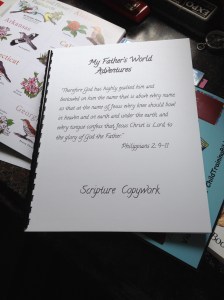 My Father's World
Adventures
"Therefore God has highly exalted him and
bestowed on him the name that is above every name
so that at the name of Jesus every knee should bow
in heaven and on earth and under the earth, and
every tongue confess that Jesus Christ is Lord, to
the glory of God the Father."
Philippians 2: 9-11
Scripture Copywork
Arkansas